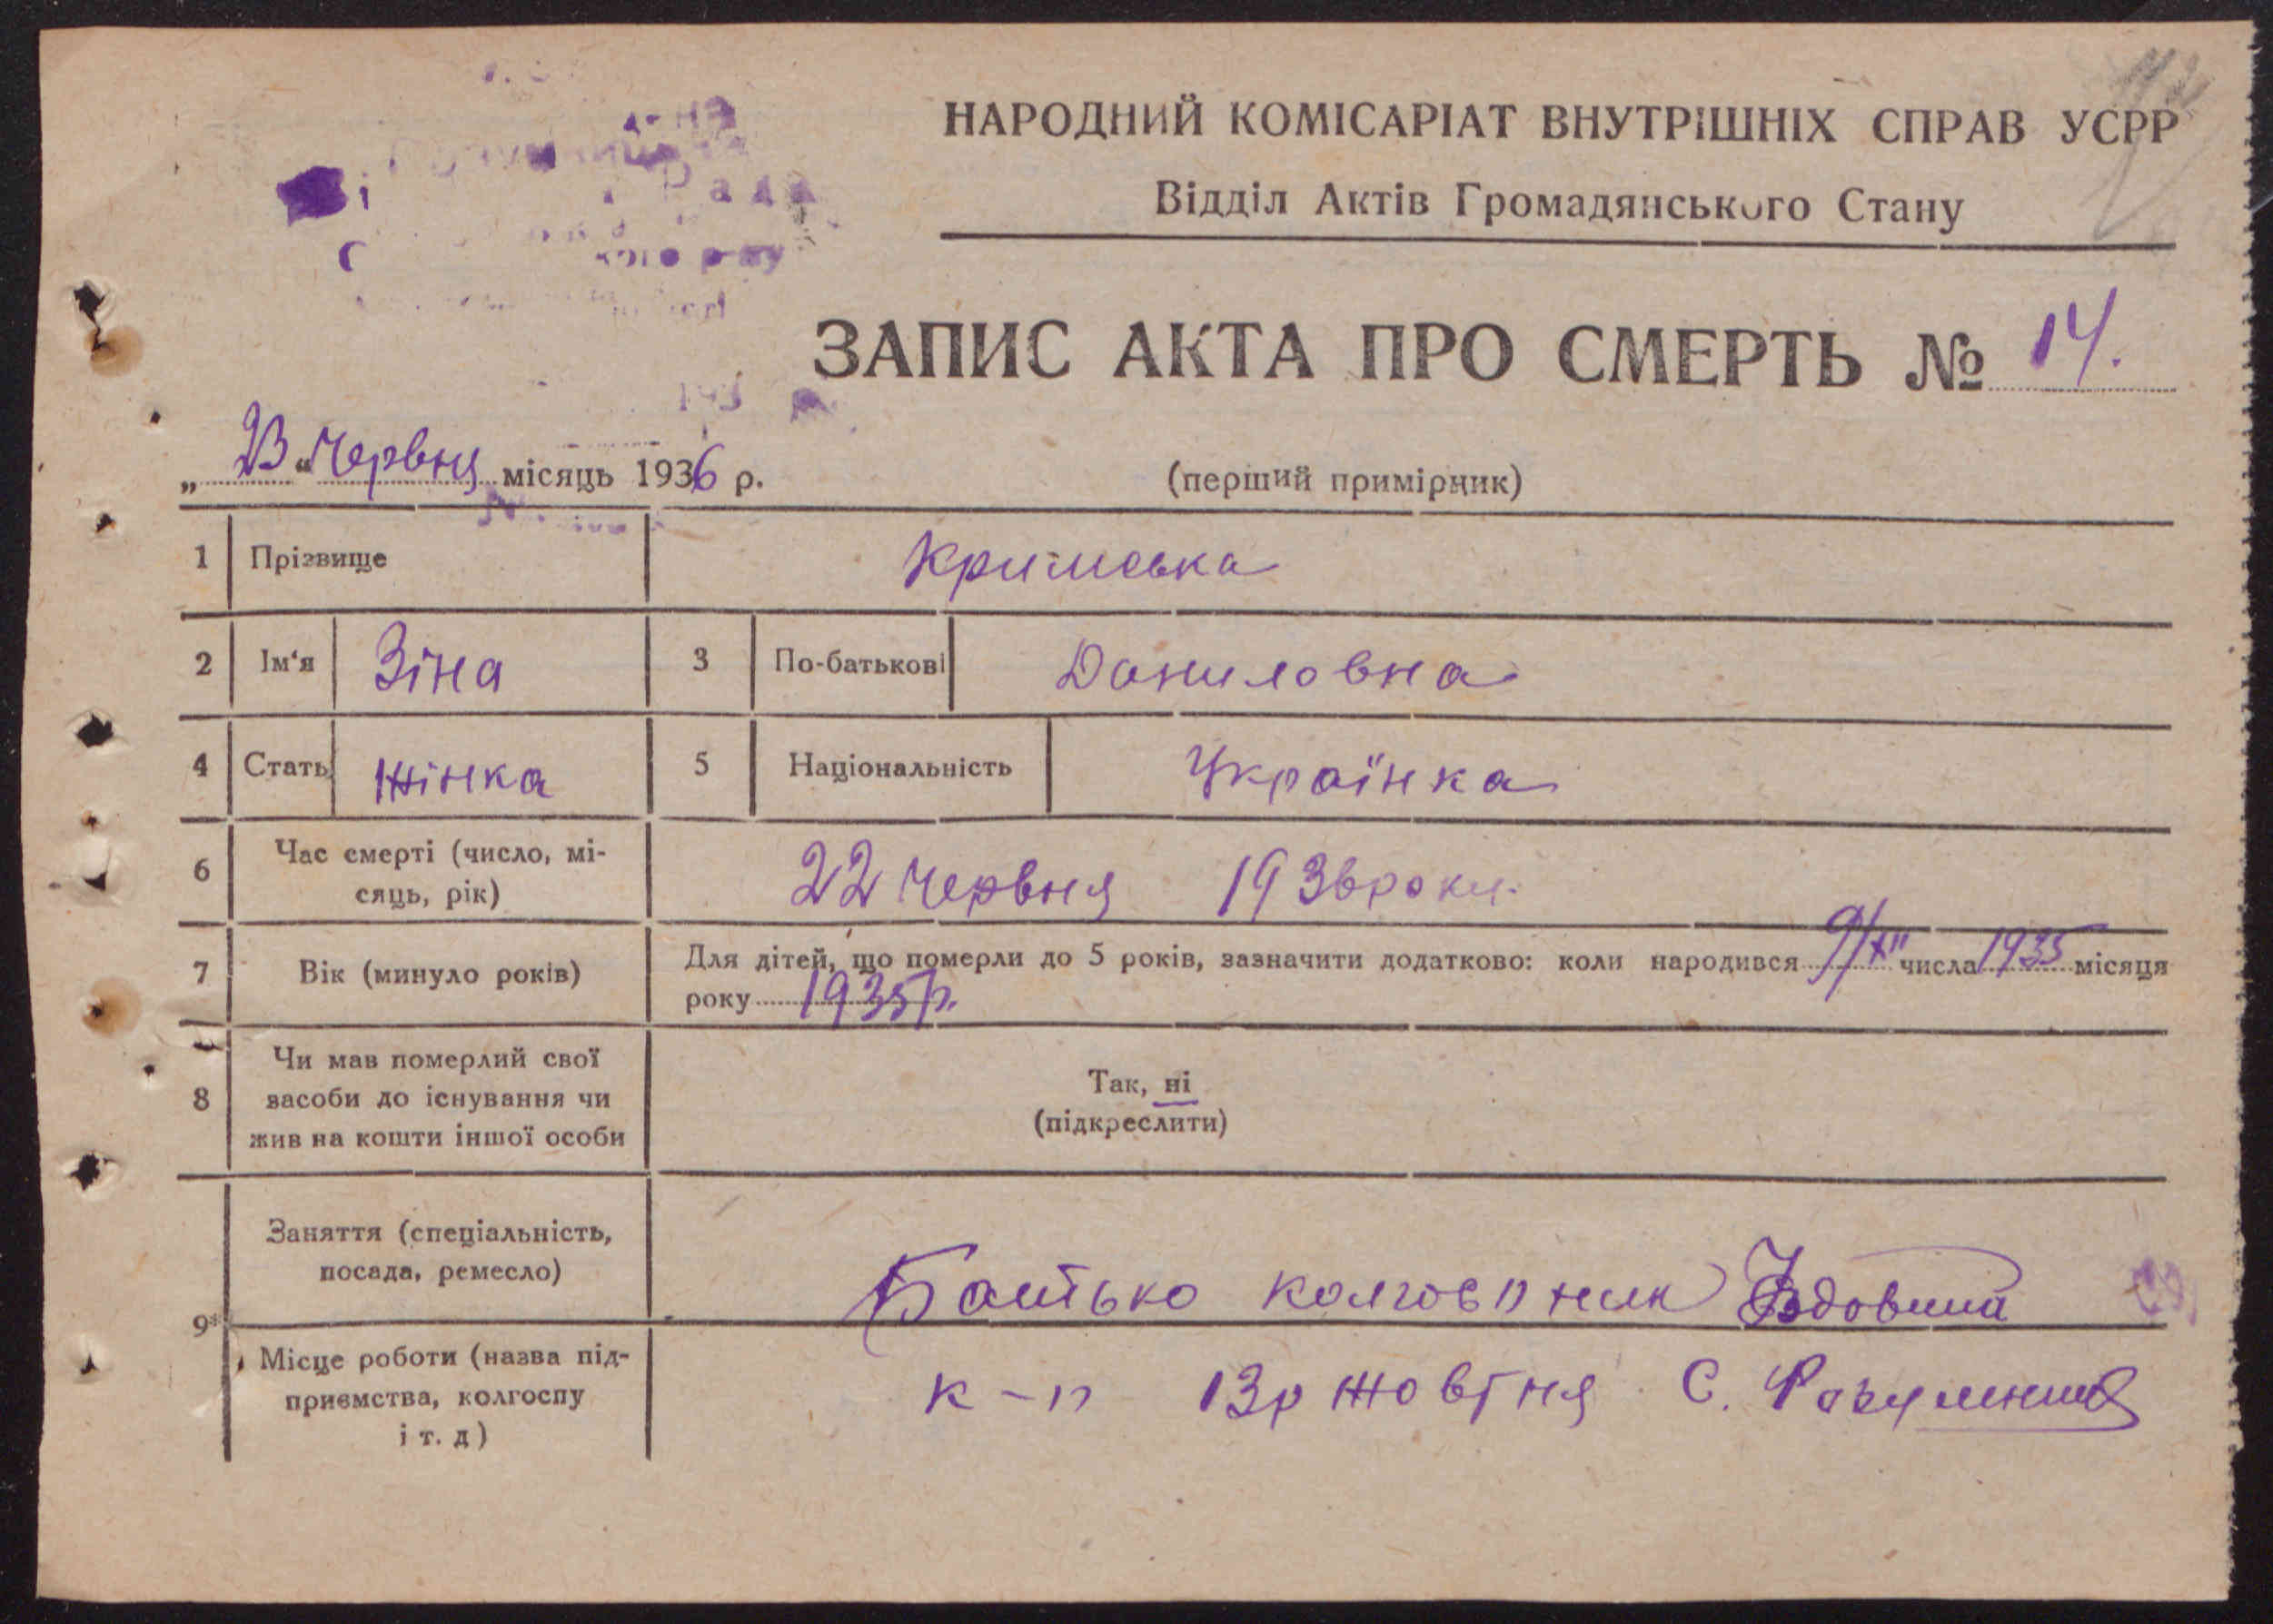 НАРОДНИЙ КОМІСАРІАТ ВНУТРІШНІХ СПРАВ УСРР
Відділ Актів Громадянського Стану
ЗАПИС АКТА ПРО СМЕРТЬ № 14.
„23“ Червня місяць 1936 р.
(перший примірник)
1 Прізвище Кримська
2 Ім‘я Зіна 3 По-батькові Даниловна
4 Стать Жінка 5 Національність Українка
6 Час смерті (число, мі-
сяць, рік) 22 Червня 1936 року.
7 Вік (минуло років) Для дітей, що померли до 5 років, зазначити додатково: коли народився 9/XII числа 1935 місяця
року 1935 р.
8 Чи мав померлий свої
засоби до існування чи
жив на кошти іншої особи
Так, ні
(підкреслити)
9* Заняття (спеціальність,
посада, ремесло) Батько колгоспник
Місце роботи (назва під-
приємства, колгоспу
і т. д) к-п 13р Жовтня С.